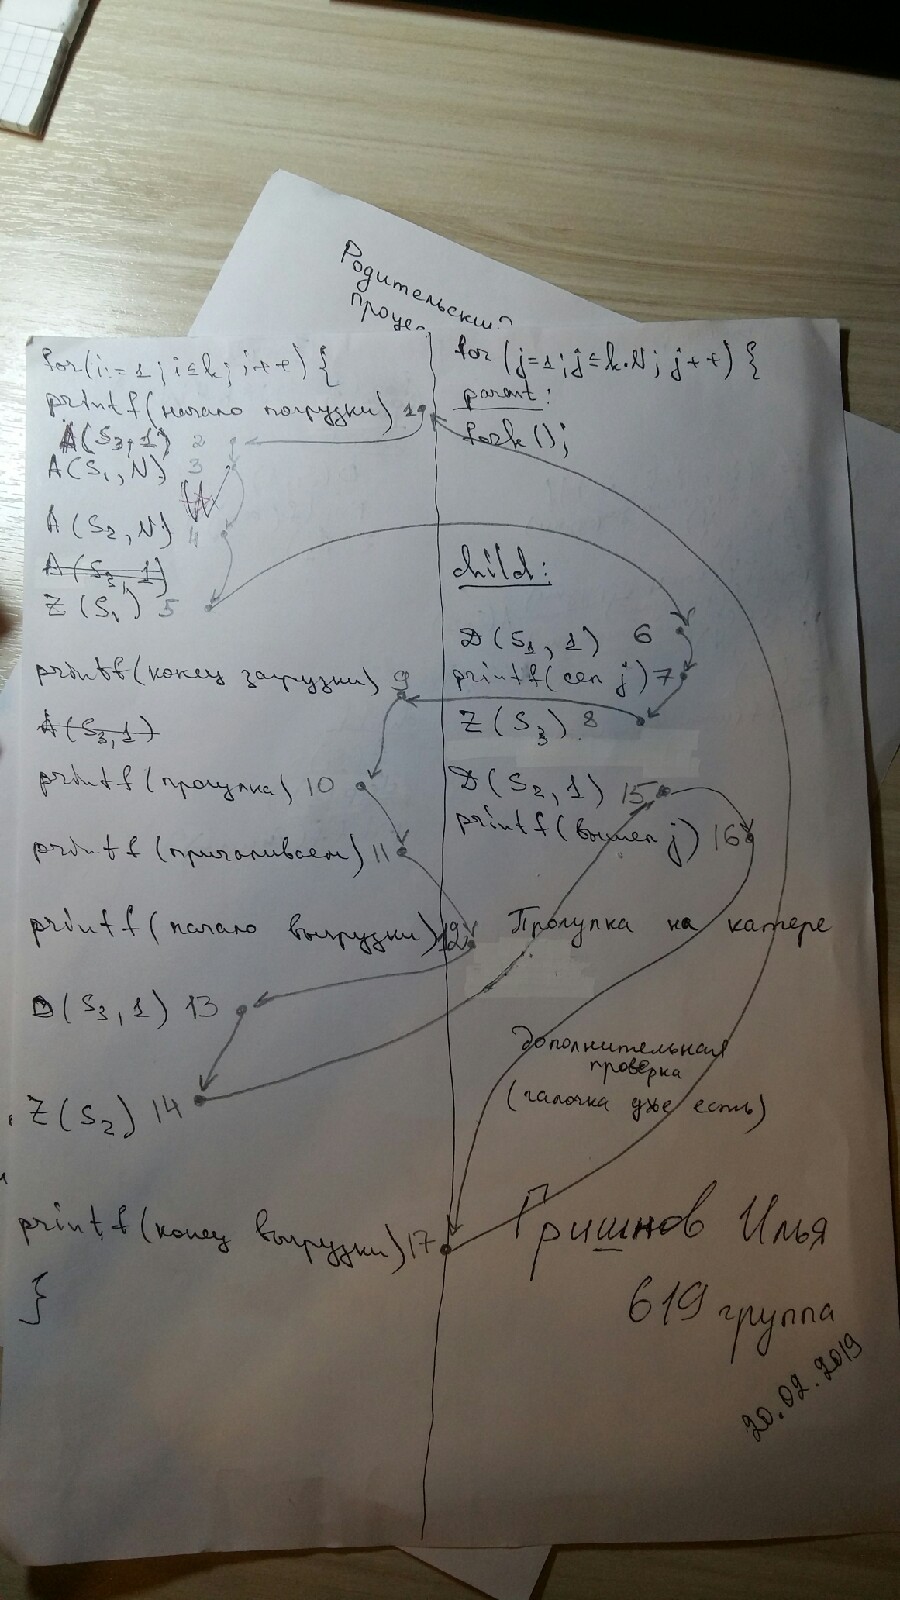 Родительский
for(i=1; i≤k; i++) {
printf(начало погрузки) 1
A(S3,1) 2
A(S1,N) 3
A(S2,N) 4
A(S3,1)
Z(S1) 5
printf(конец загрузки) 9
A(S3,1)
printf(прогулка) 10
printf(причаливаем) 11
printf(начало выгрузки) 12
D(S3,1) 13
Z(S2) 14
printf(конец выгрузки) 17
}
for (j=1; j≤k·N; j++) {
parent:
fork();
child:
D(S1,1) 6
printf(сел j) 7
Z(S3) 8
D(S2,1) 15
printf(вышел j) 16
Прогулка на катере
Дополнительная
проверка
(галочка уже есть)
Гришнов Илья
619 группа
20.02.2019